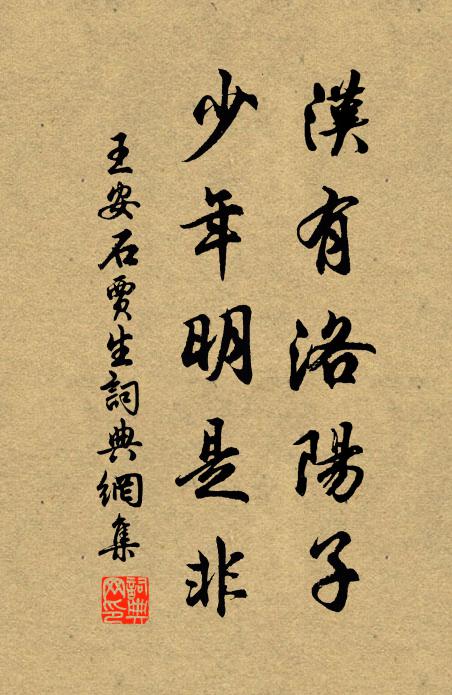 漢有洛陽子
少年明是非
王安石賈生詞典網集
詞典
网印